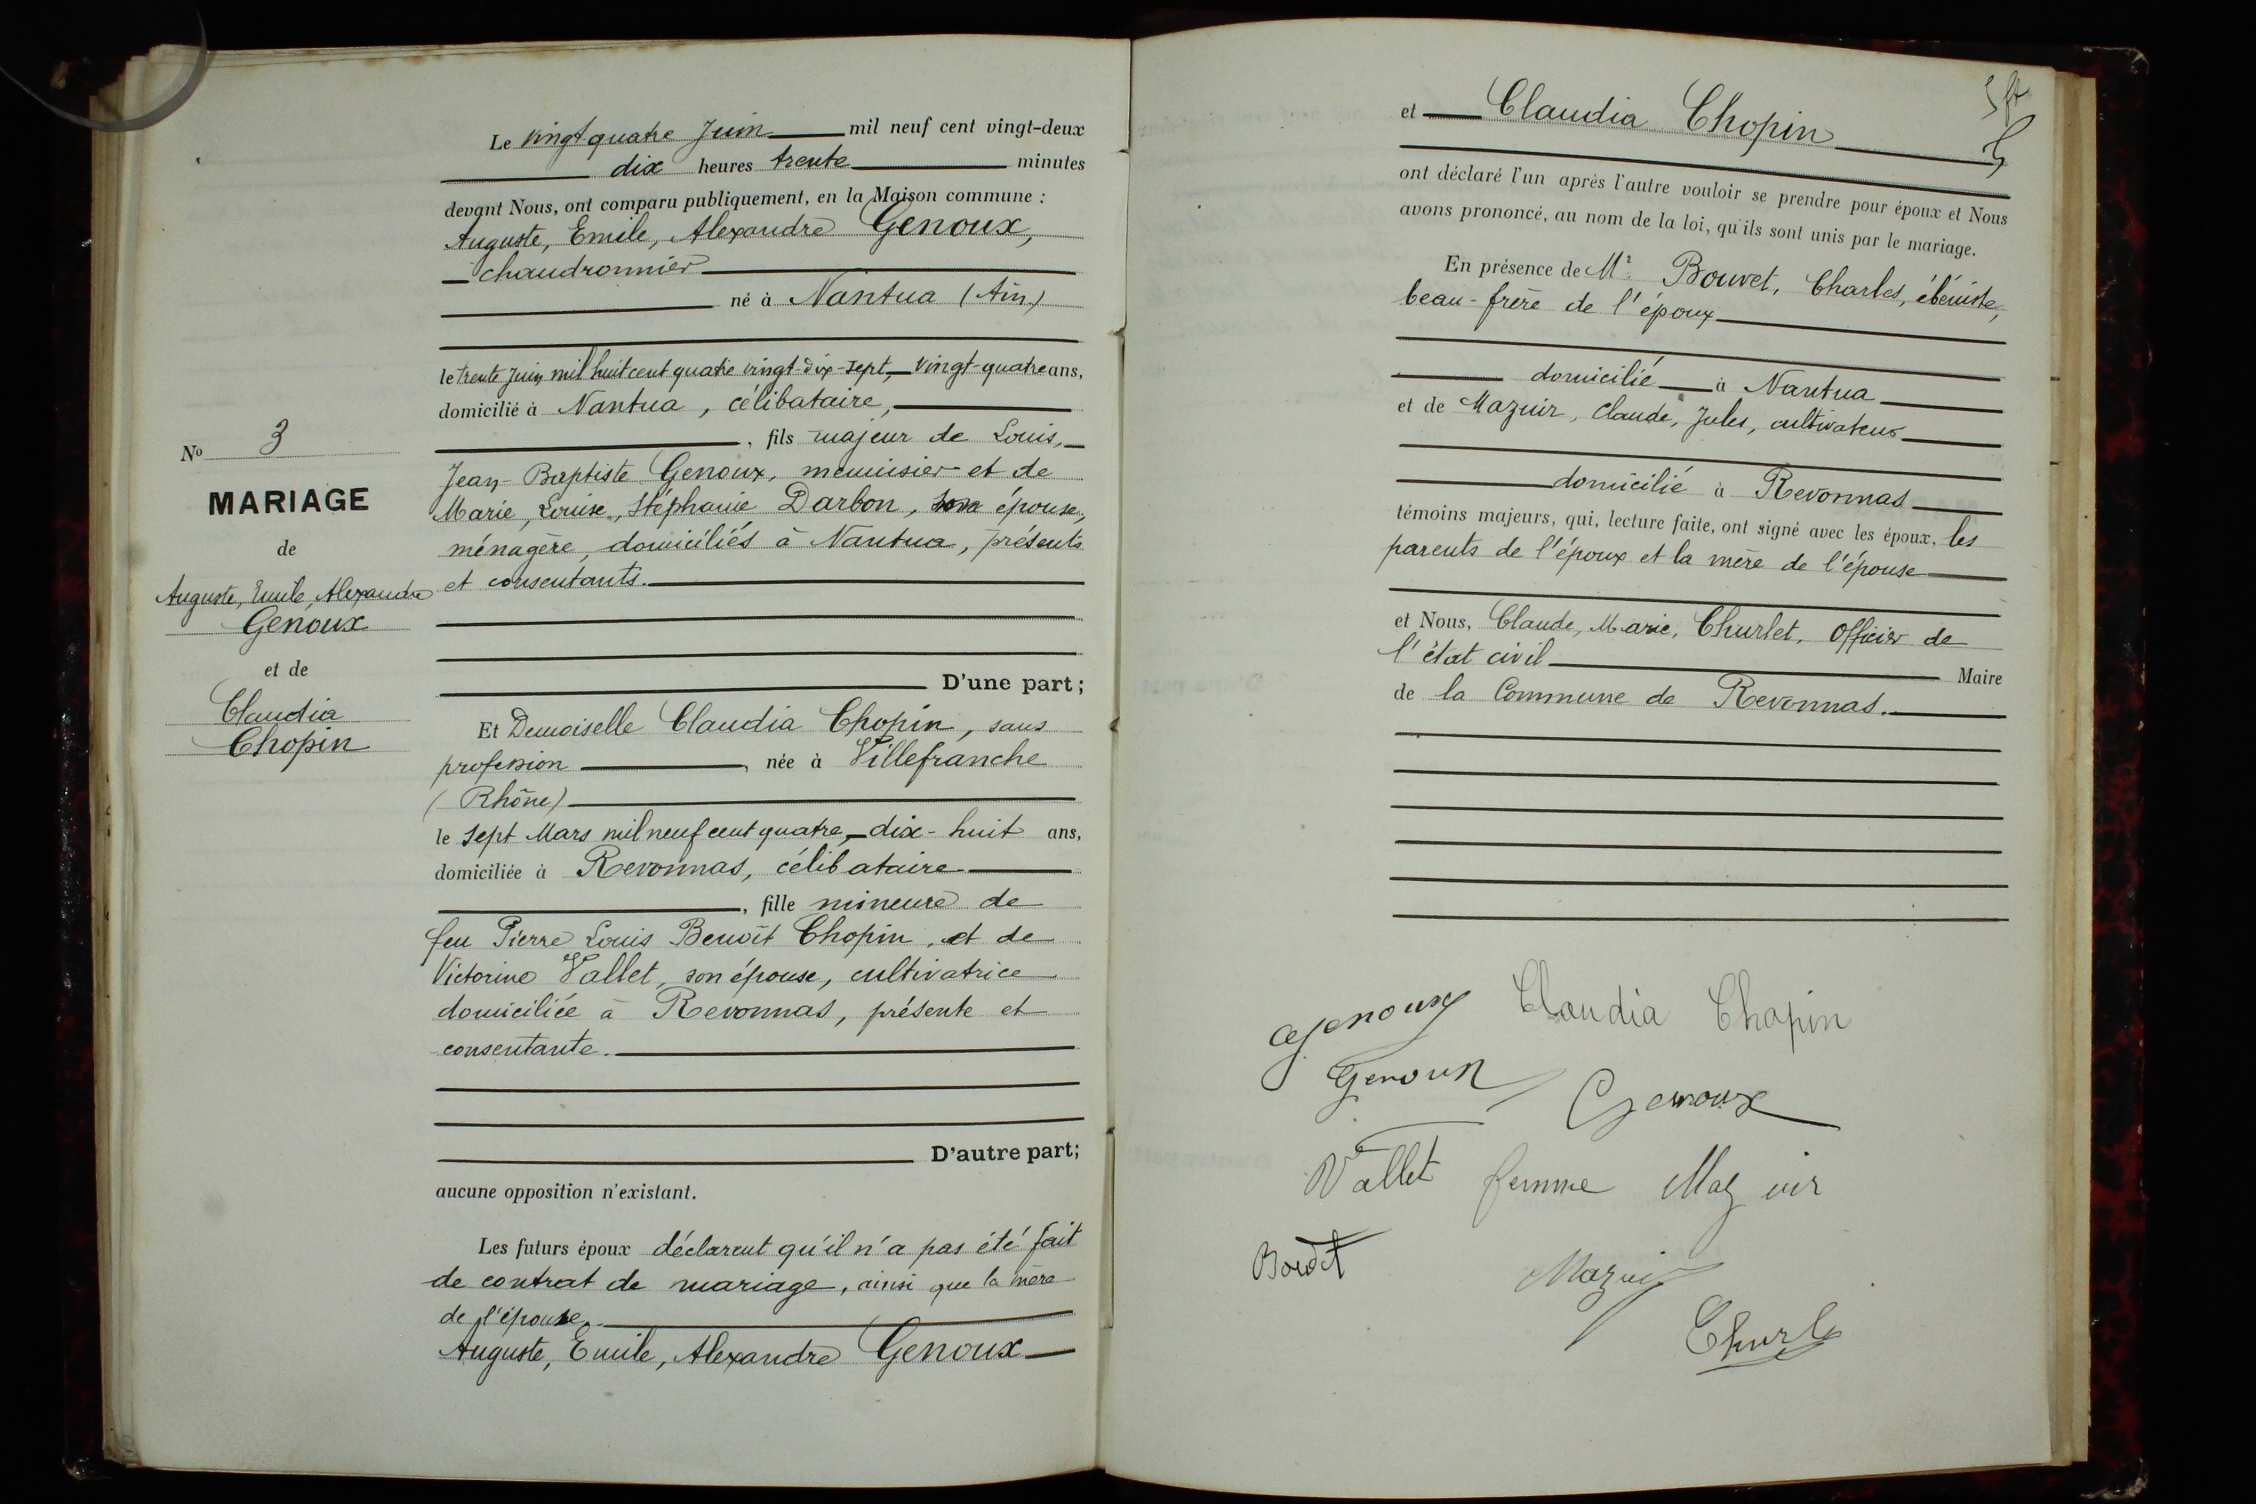 Le vingt quatre Juin mil neuf cent vingt-deux
dix heures trente minutes
devant Nous, ont comparu publiquement, en la Maison commune :
Auguste, Emile, Alexandre Genoux,
chaudronnier
né à Nantua (Ain)
le trente Juin mil huit cent quatre vingt-dix-sept, vingt-quatre ans,
domicilié à Nantua, célibataire,
, fils majeur de Louis,
Jean-Baptiste Genoux, menuisier et de
Marie, Louise, Stéphanie Darbon, son épouse,
ménagère, domiciliés à Nantua, présents
et consentants.
D'une part;
Et Demoiselle Claudia Chopin, sans
profession, née à Villefranche
(Rhône)
le sept Mars mil neuf cent quatre, dix-huit ans,
domiciliée à Revonnas, célibataire
, fille mineure de
feu Pierre Louis Benoît Chopin, et de
Victorine Vallet, son épouse, cultivatrice
domiciliée à Revonnas, présente et
consentante.
D'autre part;
aucune opposition n'existant.
Les futurs époux déclarent qu'il n'a pas été fait
de contrat de mariage, ainsi que la mère
de l'épouse.
Auguste, Emile, Alexandre Genoux
No 3
MARIAGE
de
Auguste, Emile, Alexandre
Genoux
et de
Claudia
Chopin
et Claudia Chopin
ont déclaré l'un après l'autre vouloir se prendre pour époux et Nous
avons prononcé, au nom de la loi, qu'ils sont unis par le mariage.
En présence de Mr Bouvet, Charles, ébéniste,
beau-frère de l'époux
domicilié à Nantua
et de Mazuir, Claude, Jules, cultivateur
domicilié à Revonnas
témoins majeurs, qui, lecture faite, ont signé avec les époux, les
parents de l'époux et la mère de l'épouse
et Nous, Claude, Marie, Churlet, Officier de
l'état civil Maire
de la Commune de Revonnas.
Genoux Claudia Chopin
Genoux Genoux
Vallet femme Mazuir
Mazuir